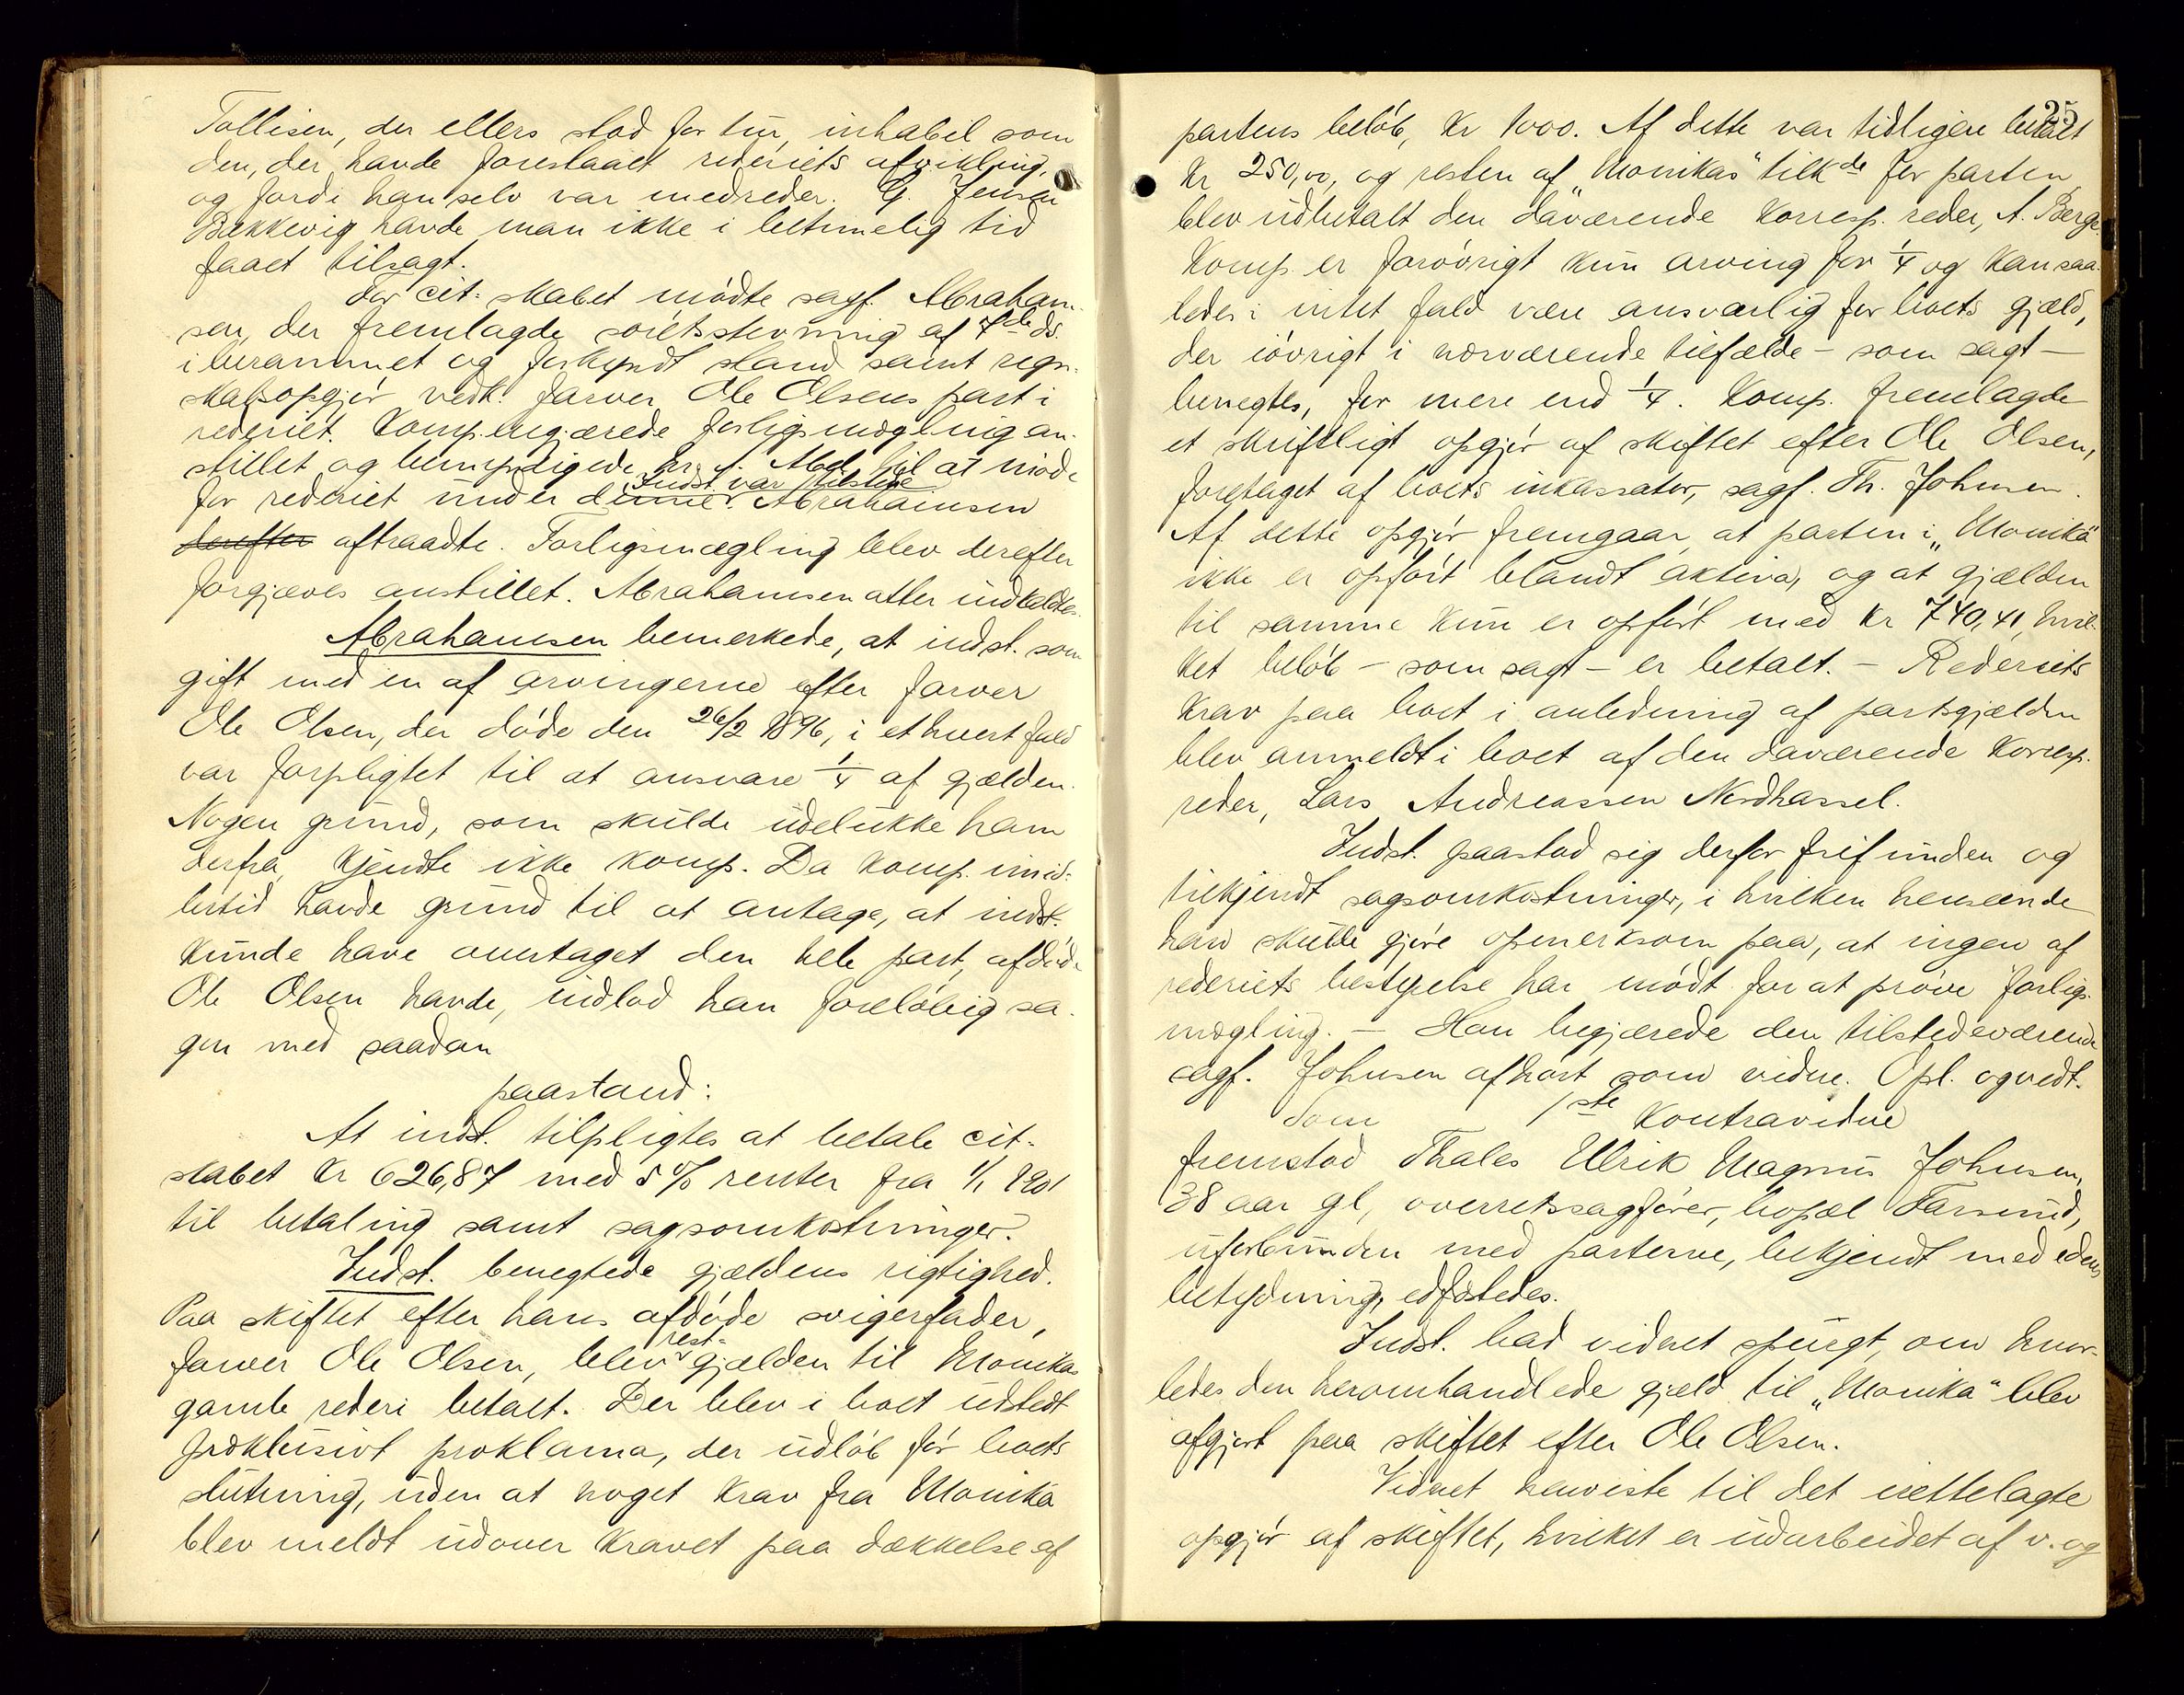 Tallisen, der ellers stod for tur, inhabil som
den, der havde forestaaet rederiets afvikling,
og fordi han selv var medreder. G. Jensen
Bækkevig havde man ikke i betimelig tid
faaet tilsagt.
For cit-skabet mødte sagf. Abraham-
sen, der fremlagde sørétsstevning af 7de ds.
i berammet og forkyndt stand samt regn-
skabsopgjør vedk. farver Ole Olsens part i
rederiet. Komp. begjærede forligsmægling an-
stillet og bemyndigede hr. Abel til at møde
Indst. var tilstede
for rederiet under denne. Abrahamsen
derefter aftraadte. Forligsmægling blev derefter
forgjæves anstillet. Abrahamsen atter indkaldtes.
Abrahamsen bemerkede, at indst. som
gift med en af arvingerne efter farver
Ole Olsen, der døde den 26/2 1896, i ethvert fald
var forpligtet til at ansvare 1/4 af gjælden.
Nogen grund, som skulde udelukke ham
derfra, kjendte ikke komp. Da komp. imid-
lertid havde grund til at antage, at indst.
kunde have overtaget den hele part, afdøde
Ole Olsen havde, indlod han foreløbig sa-
gen med saadan
paastand:
At indst. tilpligtes at betale cit-
skabet kr 626,87 med 5 % renter fra 1/1 1901
til betaling samt sagsomkostninger.
Indst. benegtede gjældens rigtighed.
Paa skiftet efter hans afdøde svigerfader,
rest-
farver Ole Olsen, blev gjælden til Monikas
gamle rederi betalt. Der blev i boet udstedt
præklusivt proklama, der udløb før boets
slutning, uden at noget krav fra Monika
blev meldt udover kravet paa dækkelse af
25
partens beløb, kr 1000. Af dette var tidligere betalt
kr 250,00, og resten af "Monikas" tilkde for parten
blev udbetalt den daværende korresp. reder, A. Berge.
Komp. er forøvrigt kun arving for 1/4 og kan saa-
ledes i intet fald være ansvarlig for boets gjæld,
der iøvrigt i nærværende tilfælde – som sagt –
benegtes, for mere end 1/4. Komp. fremlagde
et skriftligt opgjør af skiftet efter Ole Olsen,
foretaget af boets inkassator, sagf. Th. Johnsen.
Af dette opgjør fremgaar, at parten i "Monika"
ikke er opført blandt aktiva, og at gjælden
til samme kun er opført med kr 740,41, hvil-
ket beløb – som sagt – er betalt. – Rederiets
krav paa boet i anledning af partsgjælden
blev anmeldt i boet af den daværende korresp.
reder, Lars Andreassen Nordhassel.
Indst. paastod sig derfor frifunden og
tilkjendt sagsomkostninger, i hvilken henseende
han skulde gjøre opmerksom paa, at ingen af
rederiets bestyrelse har mødt for at prøve forligs-
mægling. – Han begjærede den tilstedeværende
sagf. Johnsen afhørt som vidne. Opl. og vedt.
Som 1ste Kontravidne
fremstod Thales Ulrik Magnus Johnsen,
38 aar gl, overretssagfører, bopæl Farsund,
uforbunden med parterne, bekjendt med edens
betydning, edfæstedes.
Indst. bad vidnet spurgt, om hvor-
ledes den heromhandlede gjæld til "Monika" blev
afgjort paa skiftet efter Ole Olsen.
Vidnet henviste til det irettelagte
opgjør af skiftet, hvilket er udarbeidet af v. og